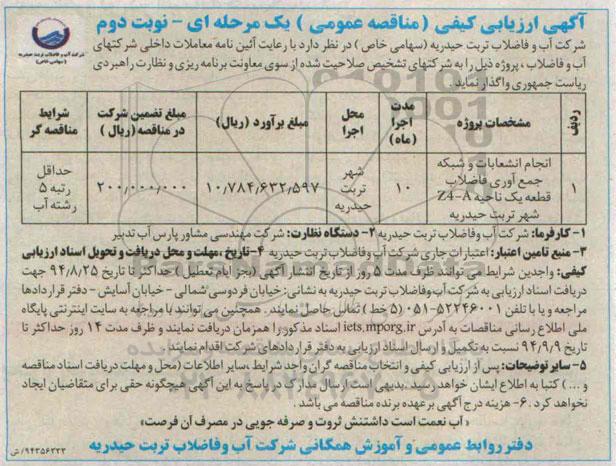 آگهی ارزیابی کیفی (مناقصه عمومی) یک مرحله ای - نوبت دوم
شرکت آب و فاضلاب تربت حیدریه
(سهامی خاص)
شرکت آب و فاضلاب تربت حیدریه (سهامی خاص) در نظر دارد با رعایت آئین نامه معاملات داخلی شرکتهای
آب و فاضلاب، پروژه ذیل را به شرکتهای تشخیص صلاحیت شده از سوی معاونت برنامه ریزی و نظارت راهبردی
ریاست جمهوری واگذار نماید.
ردیف
مشخصات پروژه
مدت اجرا (ماه)
محل اجرا
مبلغ برآورد (ریال)
مبلغ تضمین شرکت در مناقصه (ریال)
شرایط مناقصه گر
۱
انجام انشعابات و شبکه
جمع آوری فاضلاب
قطعه یک ناحیه Z4-A
شهر تربت حیدریه
۱۰
شهر تربت حیدریه
۱۰,۷۸۴,۶۳۲,۵۹۷
۲۰۰,۰۰۰,۰۰۰
حداقل رتبه ۵ رشته آب
۱- کارفرما: شرکت آب و فاضلاب تربت حیدریه ۲- دستگاه نظارت: شرکت مهندسی مشاور پارس آب تدبیر
۳- منبع تامین اعتبار: اعتبارات جاری شرکت آب و فاضلاب تربت حیدریه ۴- تاریخ، مهلت و محل دریافت و تحویل اسناد ارزیابی
کیفی: واجدین شرایط می توانند ظرف مدت ۵ روز از تاریخ انتشار آگهی (بجز ایام تعطیل) حداکثر تا تاریخ ۹۴/۸/۲۵ جهت
دریافت اسناد ارزیابی به شرکت آب و فاضلاب تربت حیدریه به نشانی: خیابان فردوسی شمالی - خیابان آسایش - دفتر قراردادها
مراجعه و یا با تلفن ۵۲۲۴۶۰۰۱-۰۵۱ (۵ خط) تماس حاصل نمایند. همچنین می توانند با مراجعه به سایت اینترنتی پایگاه
ملی اطلاع رسانی مناقصات به آدرس iets.mporg.ir اسناد مذکور را همزمان دریافت نمایند و ظرف مدت ۱۴ روز حداکثر تا
تاریخ ۹۴/۹/۹ نسبت به تکمیل و ارسال اسناد ارزیابی به دفتر قراردادهای شرکت اقدام نمایند.
۵- سایر توضیحات: پس از ارزیابی کیفی و انتخاب مناقصه گران واجد شرایط، سایر اطلاعات (محل و مهلت دریافت اسناد مناقصه
و ...) کتبا به اطلاع ایشان خواهد رسید. بدیهی است ارسال مدارک در پاسخ به این آگهی هیچگونه حقی برای متقاضیان ایجاد
نخواهد کرد. ۶- هزینه درج آگهی بر عهده برنده مناقصه می باشد.
«آب نعمت است داشتنش ثروت و صرفه جویی در مصرف آن فرصت»
دفتر روابط عمومی و آموزش همگانی شرکت آب و فاضلاب تربت حیدریه
۹۴۳۵۶۳۳۳/ش